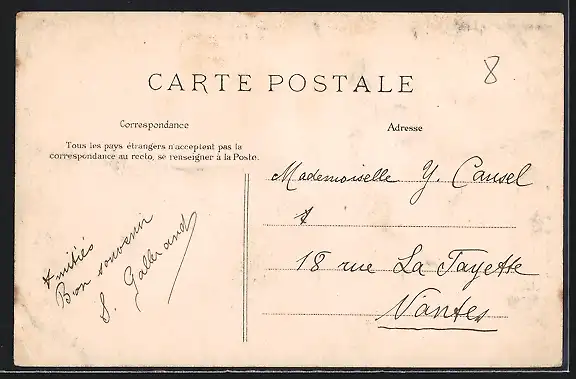 8
CARTE POSTALE
Correspondance
Adresse
Tous les pays étrangers n'acceptent pas la
correspondance au recto, se renseigner à la Poste.
Amitiés
Bon souvenir
S. Gallerand
Mademoiselle Y. Causel
18 rue La Fayette
Nantes